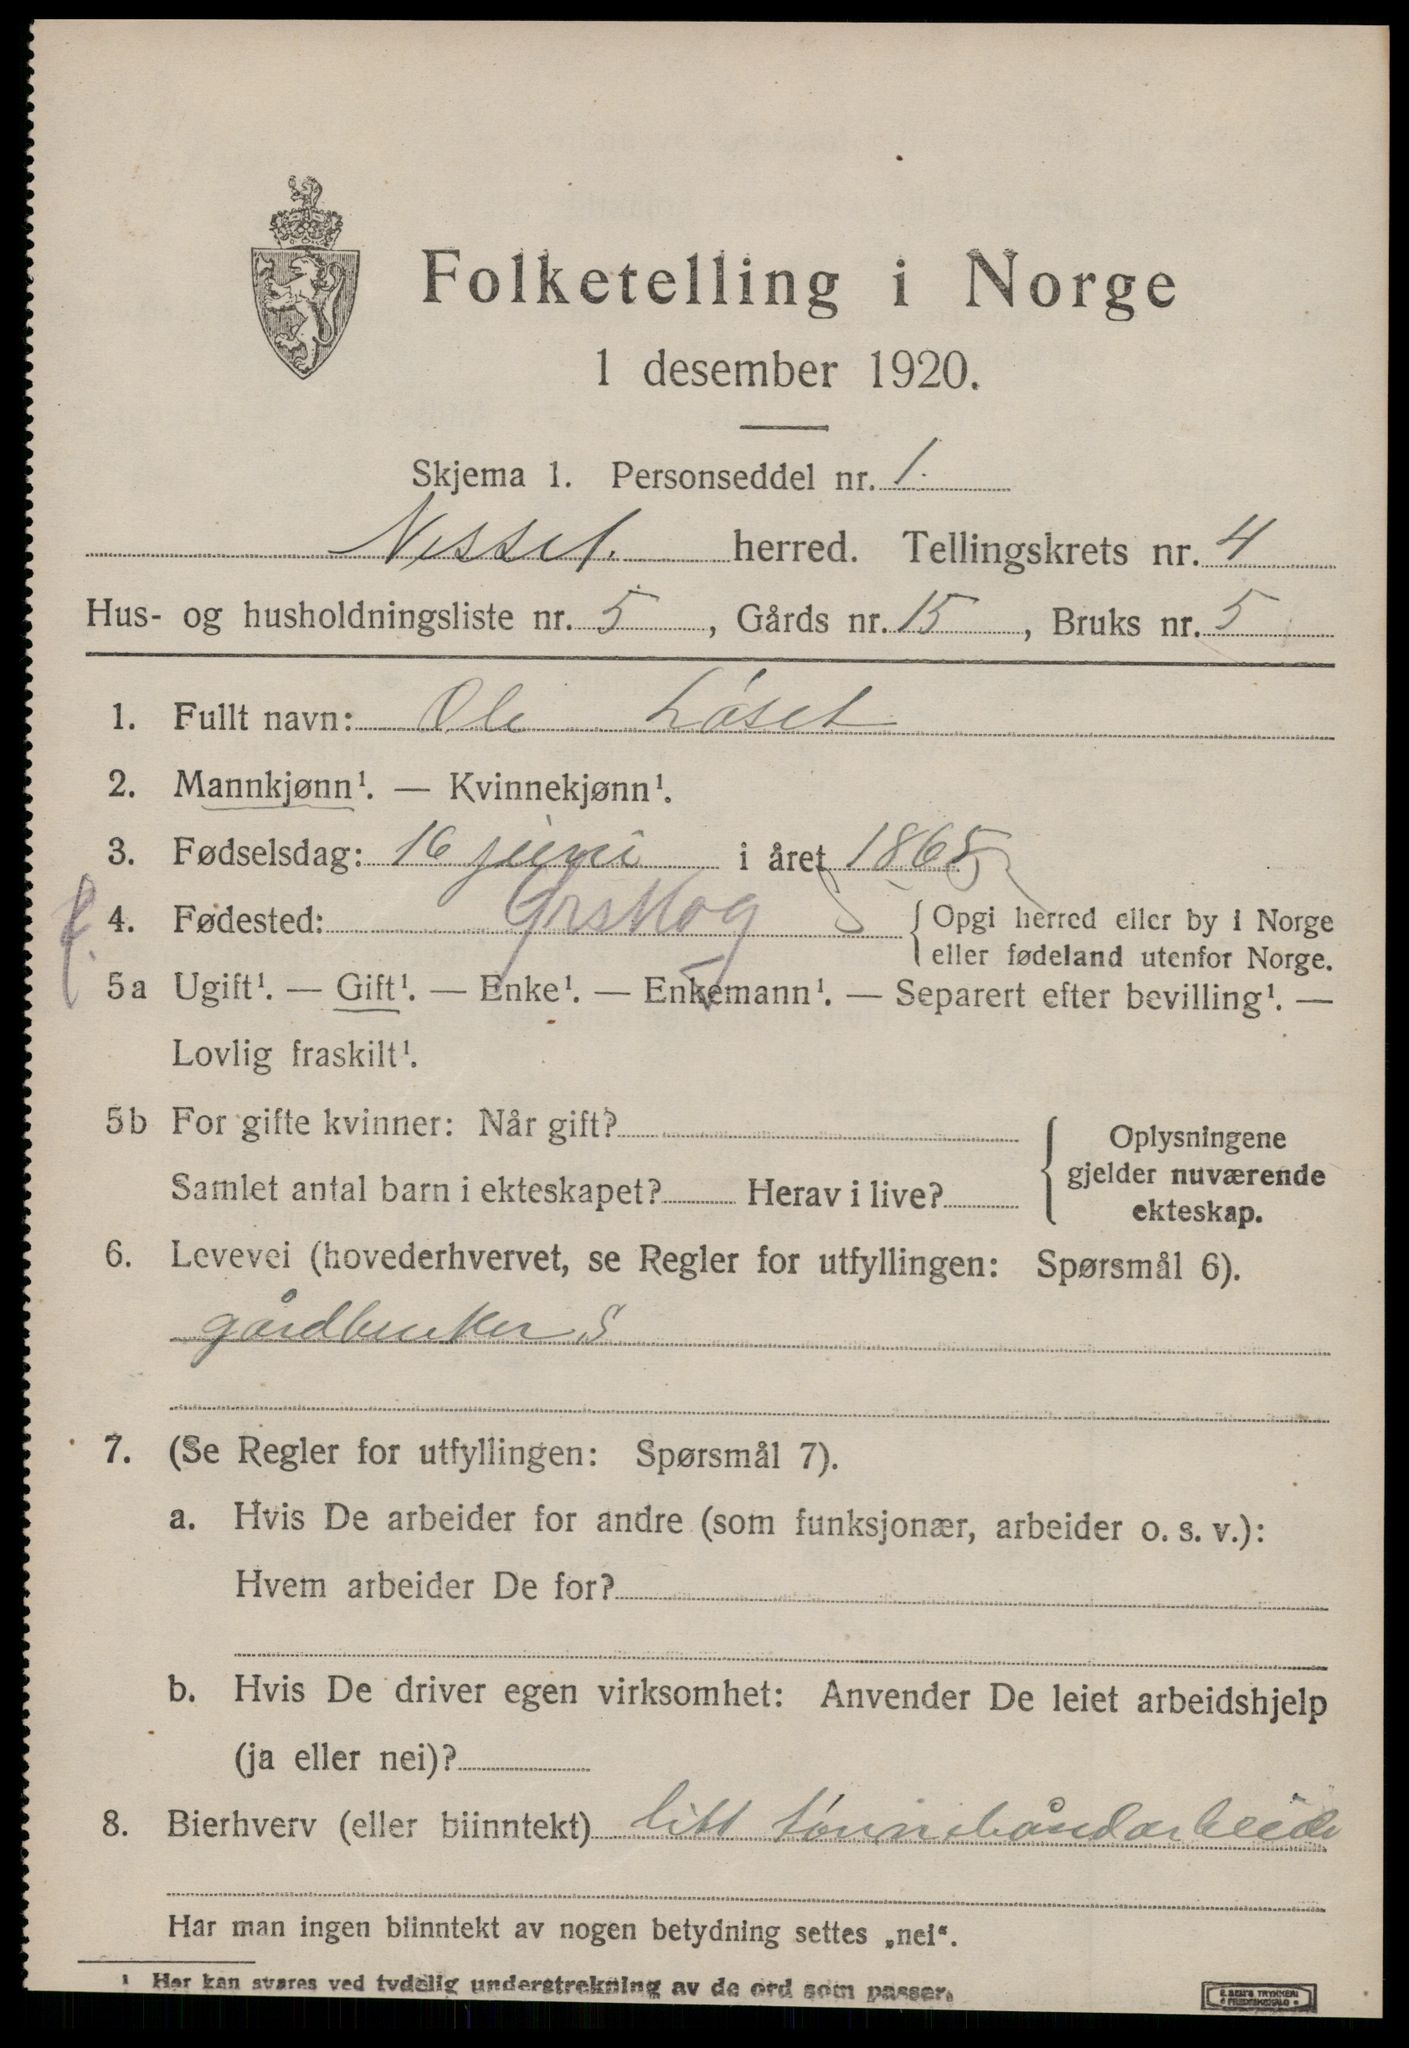 Folketelling i Norge
1 desember 1920.
Skjema 1. Personseddel nr. 1.
Nesset. herred. Tellingskrets nr. 4
Hus- og husholdningsliste nr. 5, Gårds nr. 15, Bruks nr. 5
1. Fullt navn: Ole Løset
2. Mannkjønn¹. — Kvinnekjønn¹.
3. Fødselsdag: 16 juni i året 1865
4. Fødested: Ørskog { Opgi herred eller by i Norge
eller fødeland utenfor Norge.
5a Ugift¹. — Gift¹. — Enke¹. — Enkemann¹. — Separert efter bevilling¹. —
Lovlig fraskilt¹.
5b For gifte kvinner: Når gift?
Samlet antal barn i ekteskapet? Herav i live?
Oplysningene
gjelder nuværende
ekteskap.
6. Levevei (hovederhvervet, se Regler for utfyllingen: Spørsmål 6).
gårdbruker S
7. (Se Regler for utfyllingen: Spørsmål 7).
a. Hvis De arbeider for andre (som funksjonær, arbeider o. s. v.):
Hvem arbeider De for?
b. Hvis De driver egen virksomhet: Anvender De leiet arbeidshjelp
(ja eller nei)?
8. Bierhverv (eller biinntekt) litt tønnebåndarbeide
Har man ingen biinntekt av nogen betydning settes „nei“.
¹ Her kan svares ved tydelig understrekning av de ord som passer.